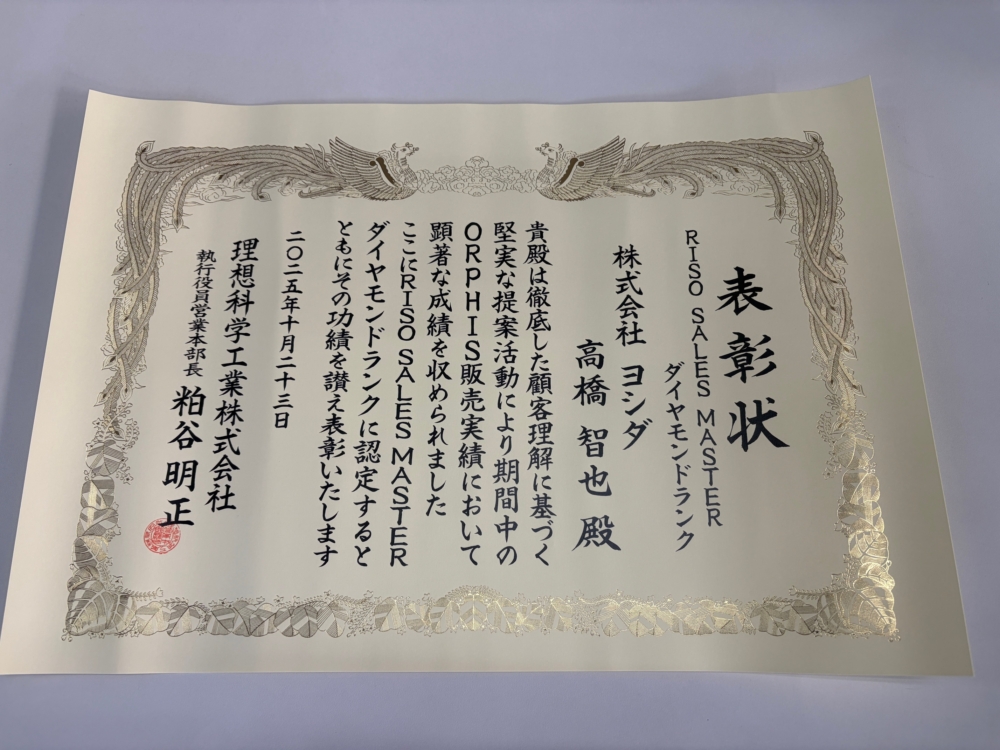 表彰状
RISO SALES MASTER
ダイヤモンドランク
株式会社 ヨシダ
高橋 智也 殿
貴殿は徹底した顧客理解に基づく
堅実な提案活動により期間中の
ORPHIS販売実績において
顕著な成績を収められました
ここにRISO SALES MASTER
ダイヤモンドランクに認定すると
ともにその功績を讃え表彰いたします
二〇二五年十月二十三日
理想科学工業株式会社
執行役員営業本部長 粕谷明正